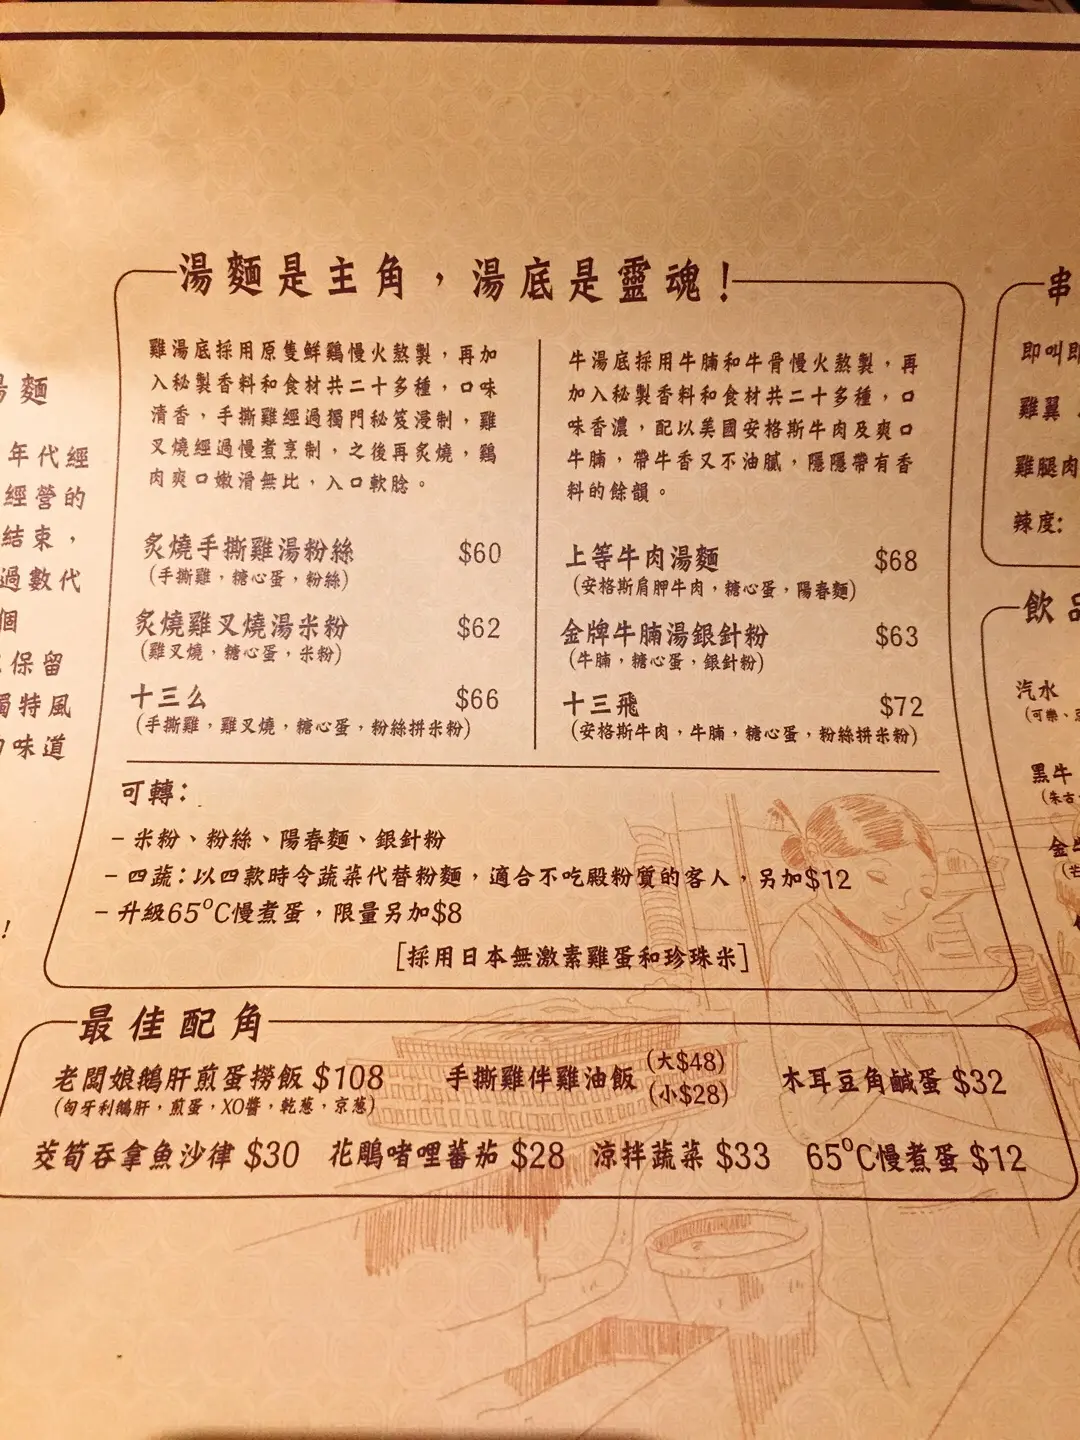 湯麵
年代經
經營的
結束，
過數代
個
保留
獨特風
味道
!
湯麵是主角，湯底是靈魂！
雞湯底採用原隻鮮鷄慢火熬製，再加
入秘製香料和食材共二十多種，口味
清香，手撕雞經過獨門秘笈浸制，雞
叉燒經過慢煮烹制，之後再炙燒，鷄
肉爽口嫩滑無比，入口軟腍。
炙燒手撕雞湯粉絲 $60
(手撕雞，糖心蛋，粉絲)
炙燒雞叉燒湯米粉 $62
(雞叉燒，糖心蛋，米粉)
十三么 $66
(手撕雞，雞叉燒，糖心蛋，粉絲拼米粉)
牛湯底採用牛腩和牛骨慢火熬製，再
加入秘製香料和食材共二十多種，口
味香濃，配以美國安格斯牛肉及爽口
牛腩，帶牛香又不油膩，隱隱帶有香
料的餘韻。
上等牛肉湯麵 $68
(安格斯肩胛牛肉，糖心蛋，陽春麵)
金牌牛腩湯銀針粉 $63
(牛腩，糖心蛋，銀針粉)
十三飛 $72
(安格斯牛肉，牛腩，糖心蛋，粉絲拼米粉)
可轉：
- 米粉、粉絲、陽春麵、銀針粉
- 四蔬：以四款時令蔬菜代替粉麵，適合不吃殿粉質的客人，另加$12
- 升級65°C慢煮蛋，限量另加$8
[採用日本無激素雞蛋和珍珠米]
最佳配角
老闆娘鵝肝煎蛋撈飯 $108
(匈牙利鵝肝，煎蛋，XO醬，乾葱，京葱)
手撕雞伴雞油飯 (大$48)
(小$28)
木耳豆角鹹蛋 $32
茭筍吞拿魚沙律 $30 花鵰啫哩蕃茄 $28 涼拌蔬菜 $33 65°C慢煮蛋 $12
串
即叫即
雞翼
雞腿肉
辣度：
飲品
汽水
(可樂、
黑牛
(朱古
金牛